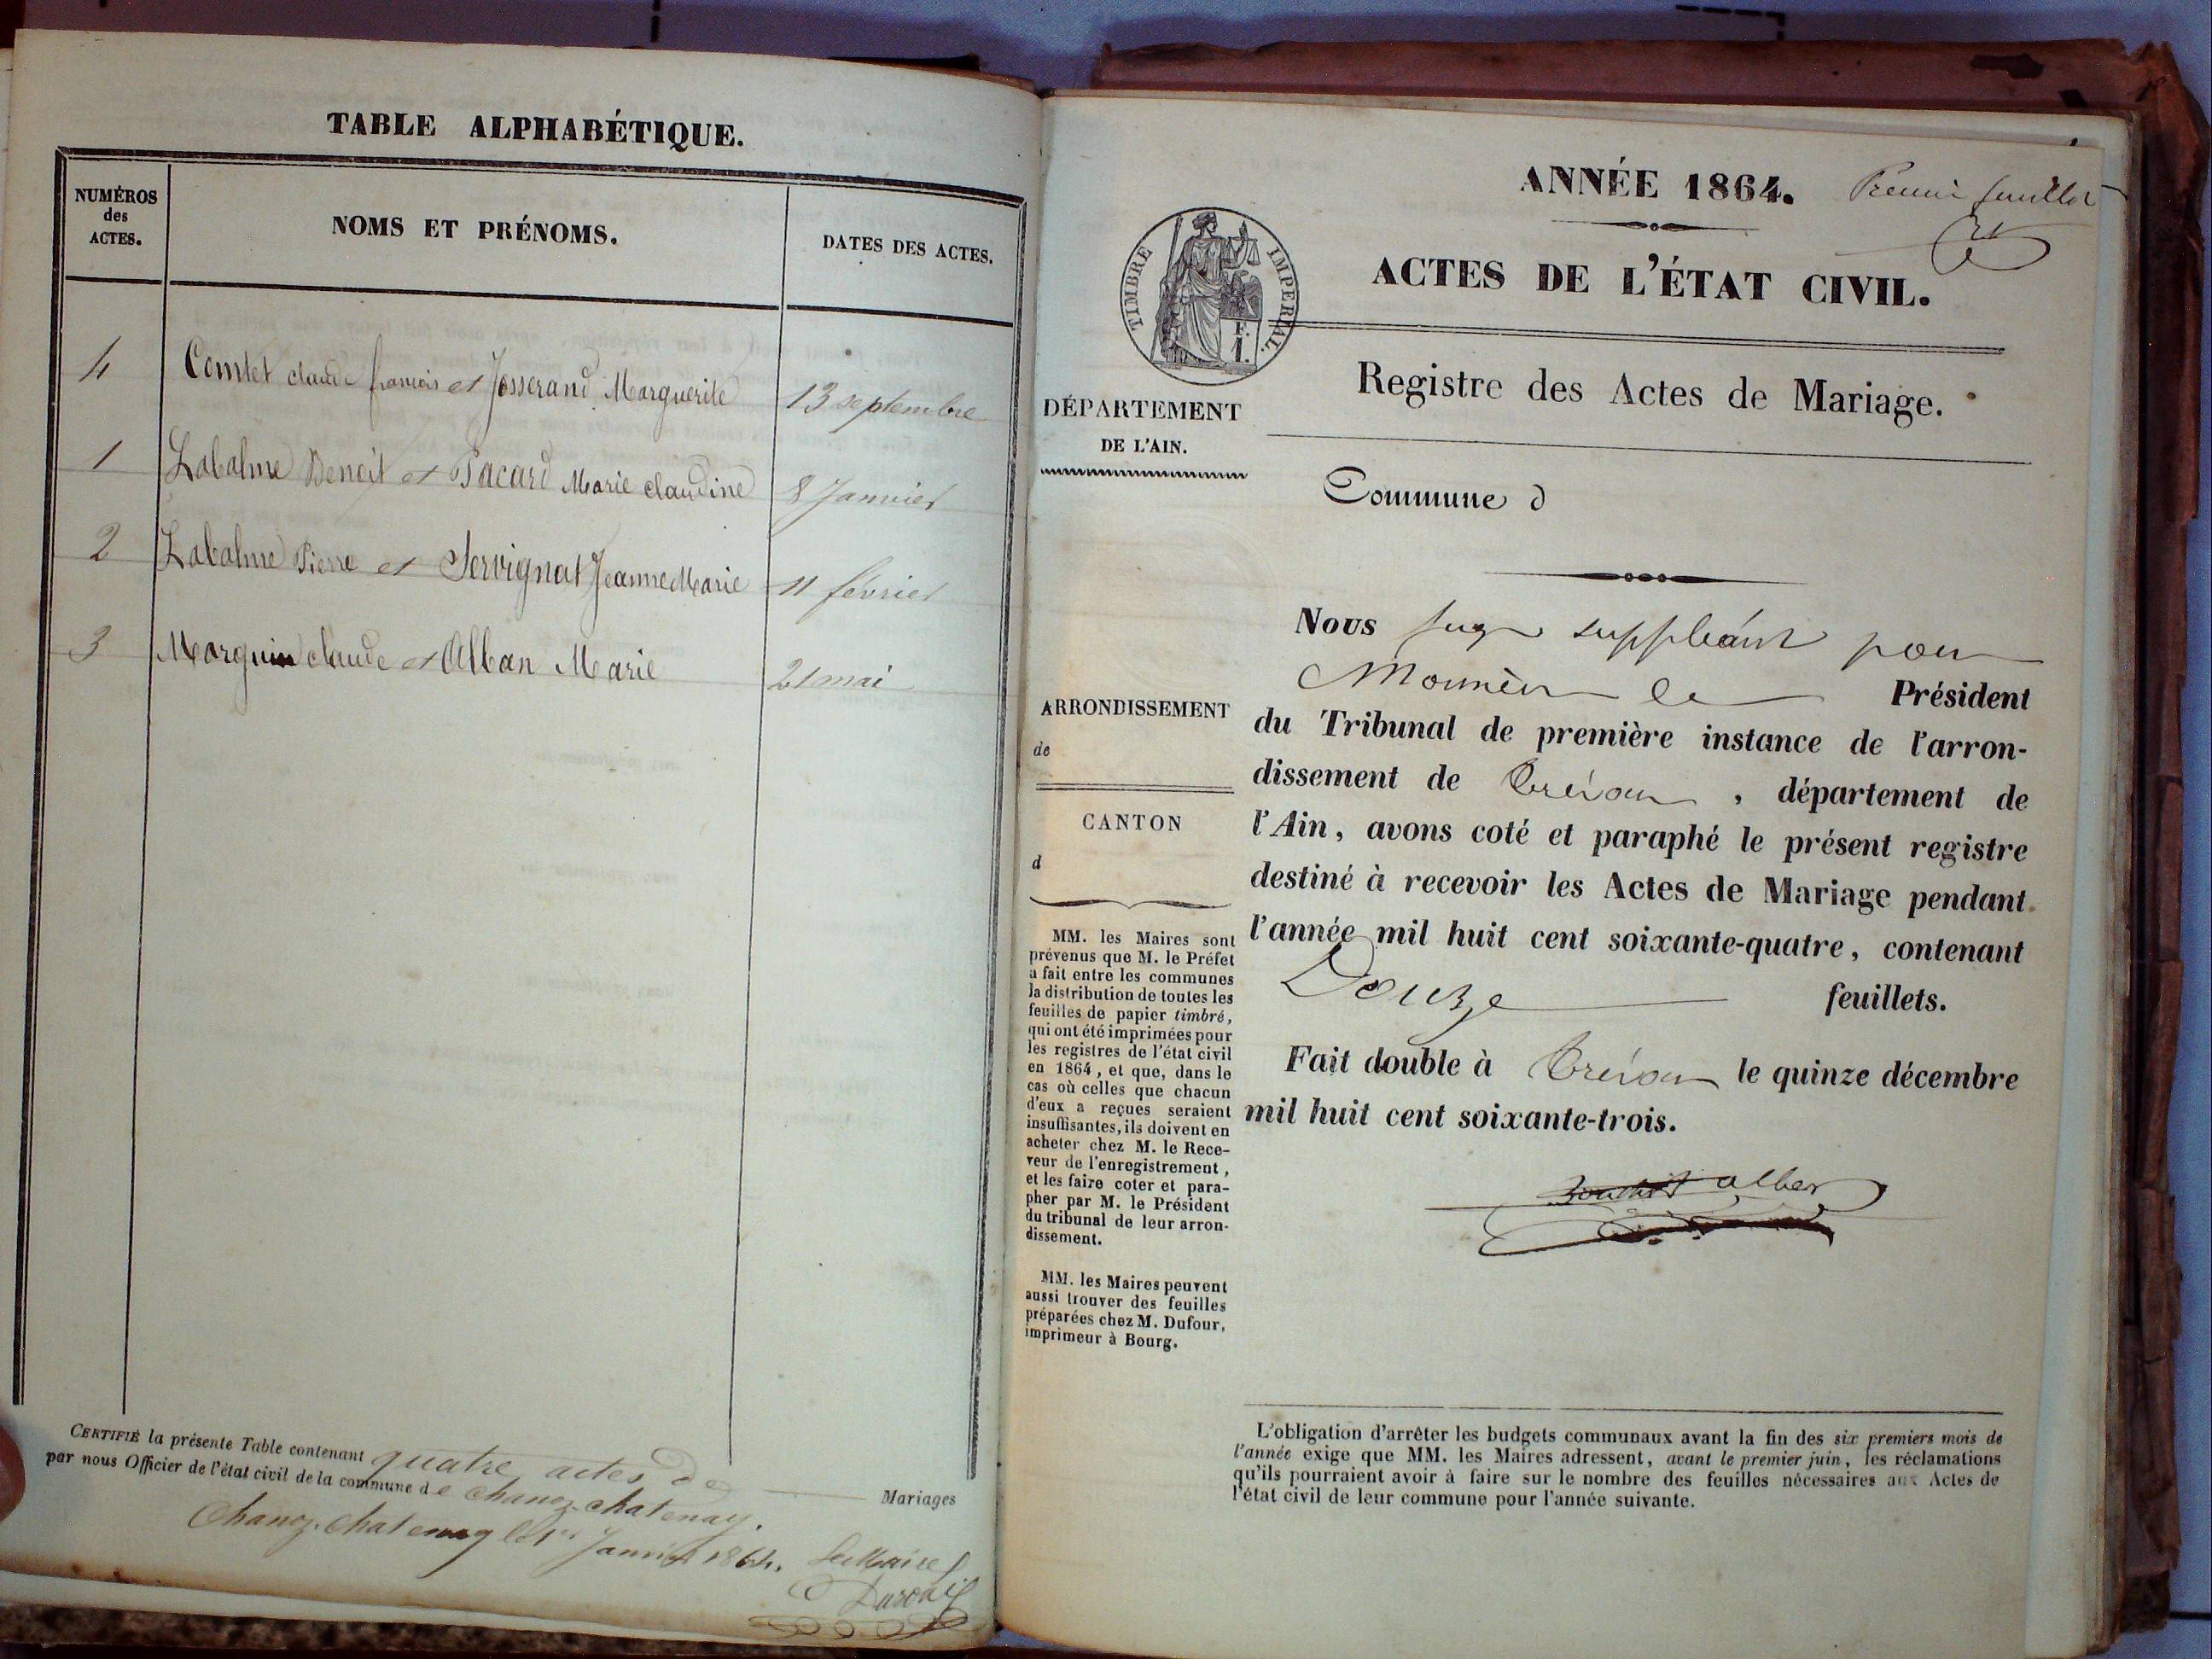 TABLE ALPHABÉTIQUE.
NUMÉROS
des
ACTES.
NOMS ET PRÉNOMS.
DATES DES ACTES.
4 Comtet claude françois et Josserand Marguerite 13 septembre
1 Labalme Benoit et Pacard Marie claudine 8 Janvier
2 Labalme Pierre et Servignat Jeanne Marie 11 février
3 Morguin claude et Alban Marie 21 mai
CERTIFIÉ la présente Table contenant quatre actes de Mariages
par nous Officier de l'état civil de la commune de Chanoz-chatenay.
Chanoz-chatenay le 1er Janvier 1864. Le Maire
ANNÉE 1864. Premier feuillet
ACTES DE L'ÉTAT CIVIL.
TIMBRE IMPERIAL.
F.
1.
Registre des Actes de Mariage.
DÉPARTEMENT
DE L'AIN.
Commune d
ARRONDISSEMENT
de
CANTON
d
MM. les Maires sont
prévenus que M. le Préfet
a fait entre les communes
la distribution de toutes les
feuilles de papier timbré,
qui ont été imprimées pour
les registres de l'état civil
en 1864, et que, dans le
cas où celles que chacun
d'eux a reçues seraient
insuffisantes, ils doivent en
acheter chez M. le Rece-
veur de l'enregistrement,
et les faire coter et para-
pher par M. le Président
du tribunal de leur arron-
dissement.
MM. les Maires peuvent
aussi trouver des feuilles
préparées chez M. Dufour,
imprimeur à Bourg.
Nous Juge suppléant pour
Monsieur le Président
du Tribunal de première instance de l'arron-
dissement de Trévoux, département de
l'Ain, avons coté et paraphé le présent registre
destiné à recevoir les Actes de Mariage pendant
l'année mil huit cent soixante-quatre, contenant
Douze feuillets.
Fait double à Trévoux le quinze décembre
mil huit cent soixante-trois.
L'obligation d'arrêter les budgets communaux avant la fin des six premiers mois de
l'année exige que MM. les Maires adressent, avant le premier juin, les réclamations
qu'ils pourraient avoir à faire sur le nombre des feuilles nécessaires aux Actes de
l'état civil de leur commune pour l'année suivante.